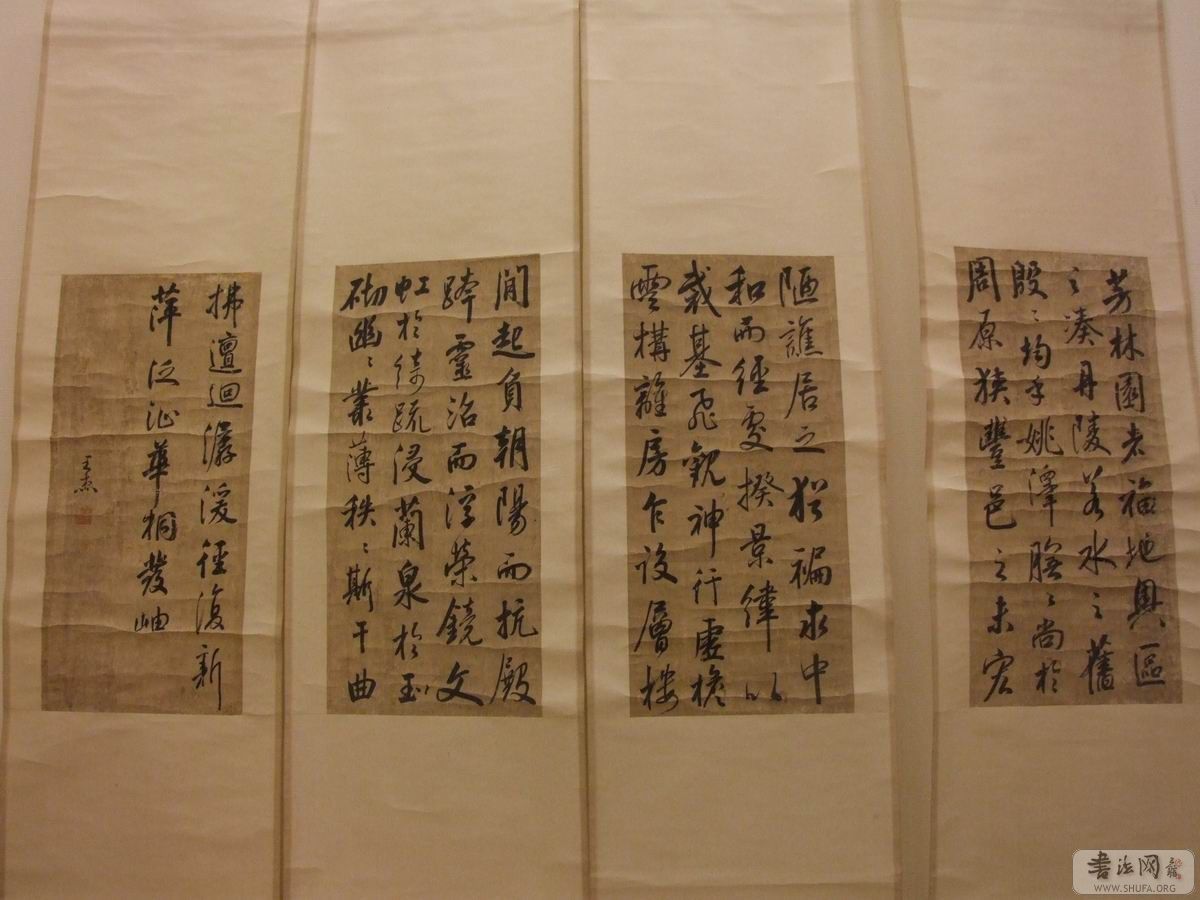 芳林園者福地奧區
之湊丹陵若水之舊
殷〻均乎姚澤膴〻尚於
周原狹豐邑之未宏
陋譙居之猶褊求中
和而經處揆景緯以
裁基飛觀神行虛檐
雲構離房乍設層樓
間起負朝陽而抗殿
跨靈沼而浮榮鏡文
虹於綺疏浸蘭泉於玉
砌幽〻叢薄秩〻斯干曲
拂邅迴潺湲徑復新
萍泛沚華桐發岫
王杰
書法网
WWW.SHUFA.ORG